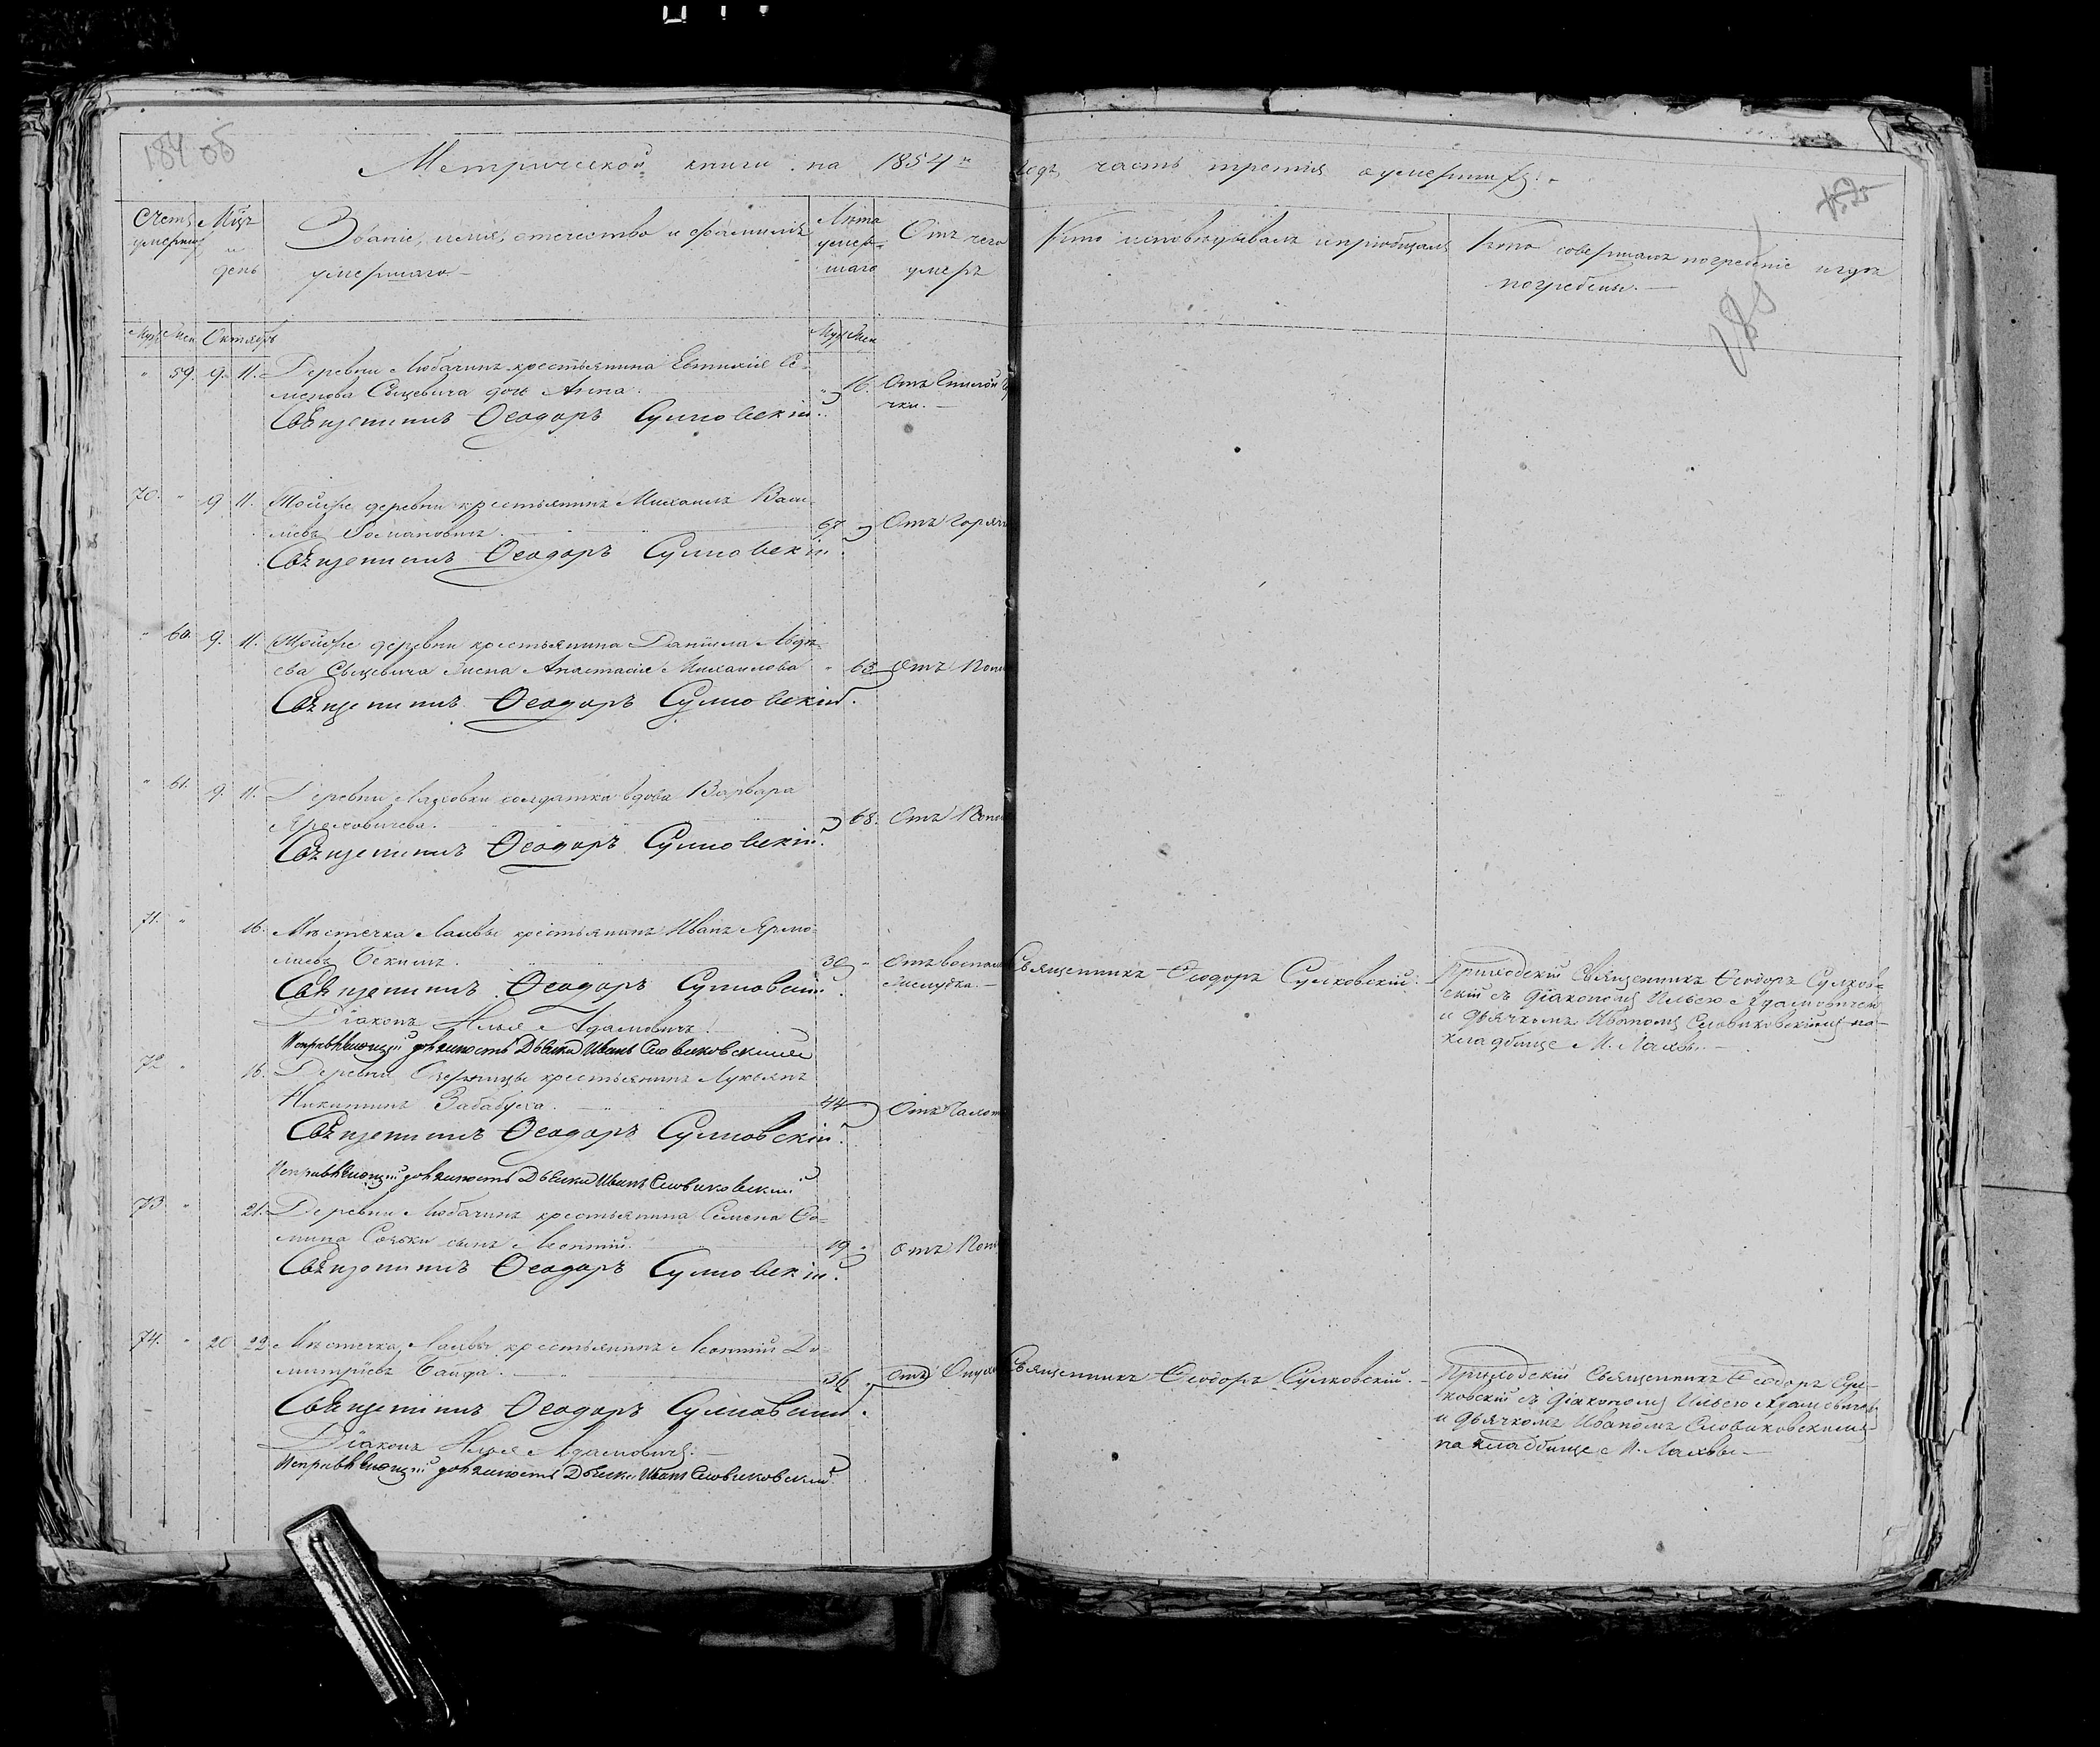 184 об
Метрической книги на 1854й годъ часть третія о умершихъ.
185
Счетъ умершихъ
Мцъ и день
Званіе, имя, отечество и фамилія
умершаго
Лѣта умершаго
Отъ чего умеръ
Кто исповѣдывалъ и пріобщалъ
Кто совершалъ погребеніе и гдѣ
погребены.
Муж Жен Октябрь
Муж Жен
" 59. 9. 11. Деревни Любачинъ крестьянина Евтихія Се-
менова Сыцевича дочь Анна. " 16. Отъ
Священникъ Ѳеодоръ Сулковскій.
70. " 9 11. Тойже деревни крестьянинъ Михаилъ Васи-
ліевъ 67 " Отъ
Священникъ Ѳеодоръ Сулковскій.
" 60. 9. 11. Тойже деревни крестьянина Даніила
Сыцевича жена Анастасія Михаилова " 63 Отъ
Священникъ Ѳеодоръ Сулковскій.
" 61. 9. 11. Деревни Лаховки солдатка вдова Варвара
" 68. Отъ
Священникъ Ѳеодоръ Сулковскій.
71. " 16. Мѣстечка Лахвы крестьянинъ Иванъ Ермо-
лаевъ 30 " Отъ
Священникъ Ѳеодоръ Сулковскій.
Діаконъ Илья Адамовичъ.
Исправляющій должность Дьячка Иванъ Словиковскій
Священникъ Ѳеодоръ Сулковскій.
Приходскій Священникъ Ѳеодоръ Сулков-
скій съ Діакономъ Ильею Адамовичемъ
и дьячкомъ Иваномъ Словиковскимъ на
кладбище М. Лахвы.
72 " 16. Деревни крестьянинъ Лукьянъ
Никитинъ Забабуха. 44 " Отъ
Священникъ Ѳеодоръ Сулковскій.
Исправляющій должность Дьячка Иванъ Словиковскій
73 " 21. Деревни Любачинъ крестьянина Семена
сынъ Леонтій. 19 " Отъ
Священникъ Ѳеодоръ Сулковскій.
74. " 20 22 Мѣстечка Лахвы крестьянинъ Леонтій Ди-
митріевъ Байда. 36 " Отъ
Священникъ Ѳеодоръ Сулковскій.
Діаконъ Илья Адамовичъ.
Исправляющій должность Дьячка Иванъ Словиковскій.
Священникъ Ѳеодоръ Сулковскій.
Приходскій Священникъ Ѳеодоръ Сул-
ковскій съ Діакономъ Ильею Адамовичемъ
и дьячкомъ Иваномъ Словиковскимъ
на кладбище М. Лахвы